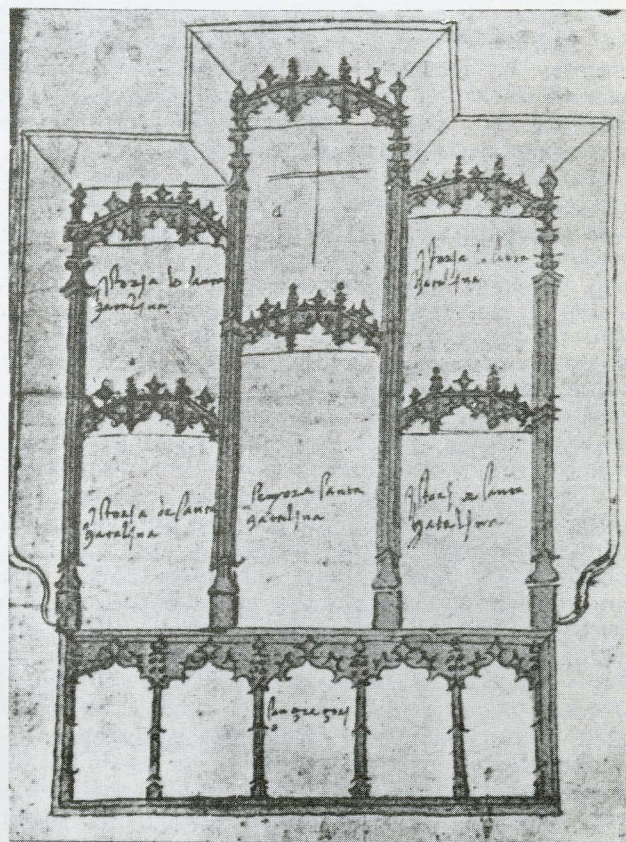 ystoria de santa
gatalina
ystoria de santa
gatalina
ystoria de santa
gatalina
senyora santa
gatalina
ystoria de santa
gatalina
san gregori